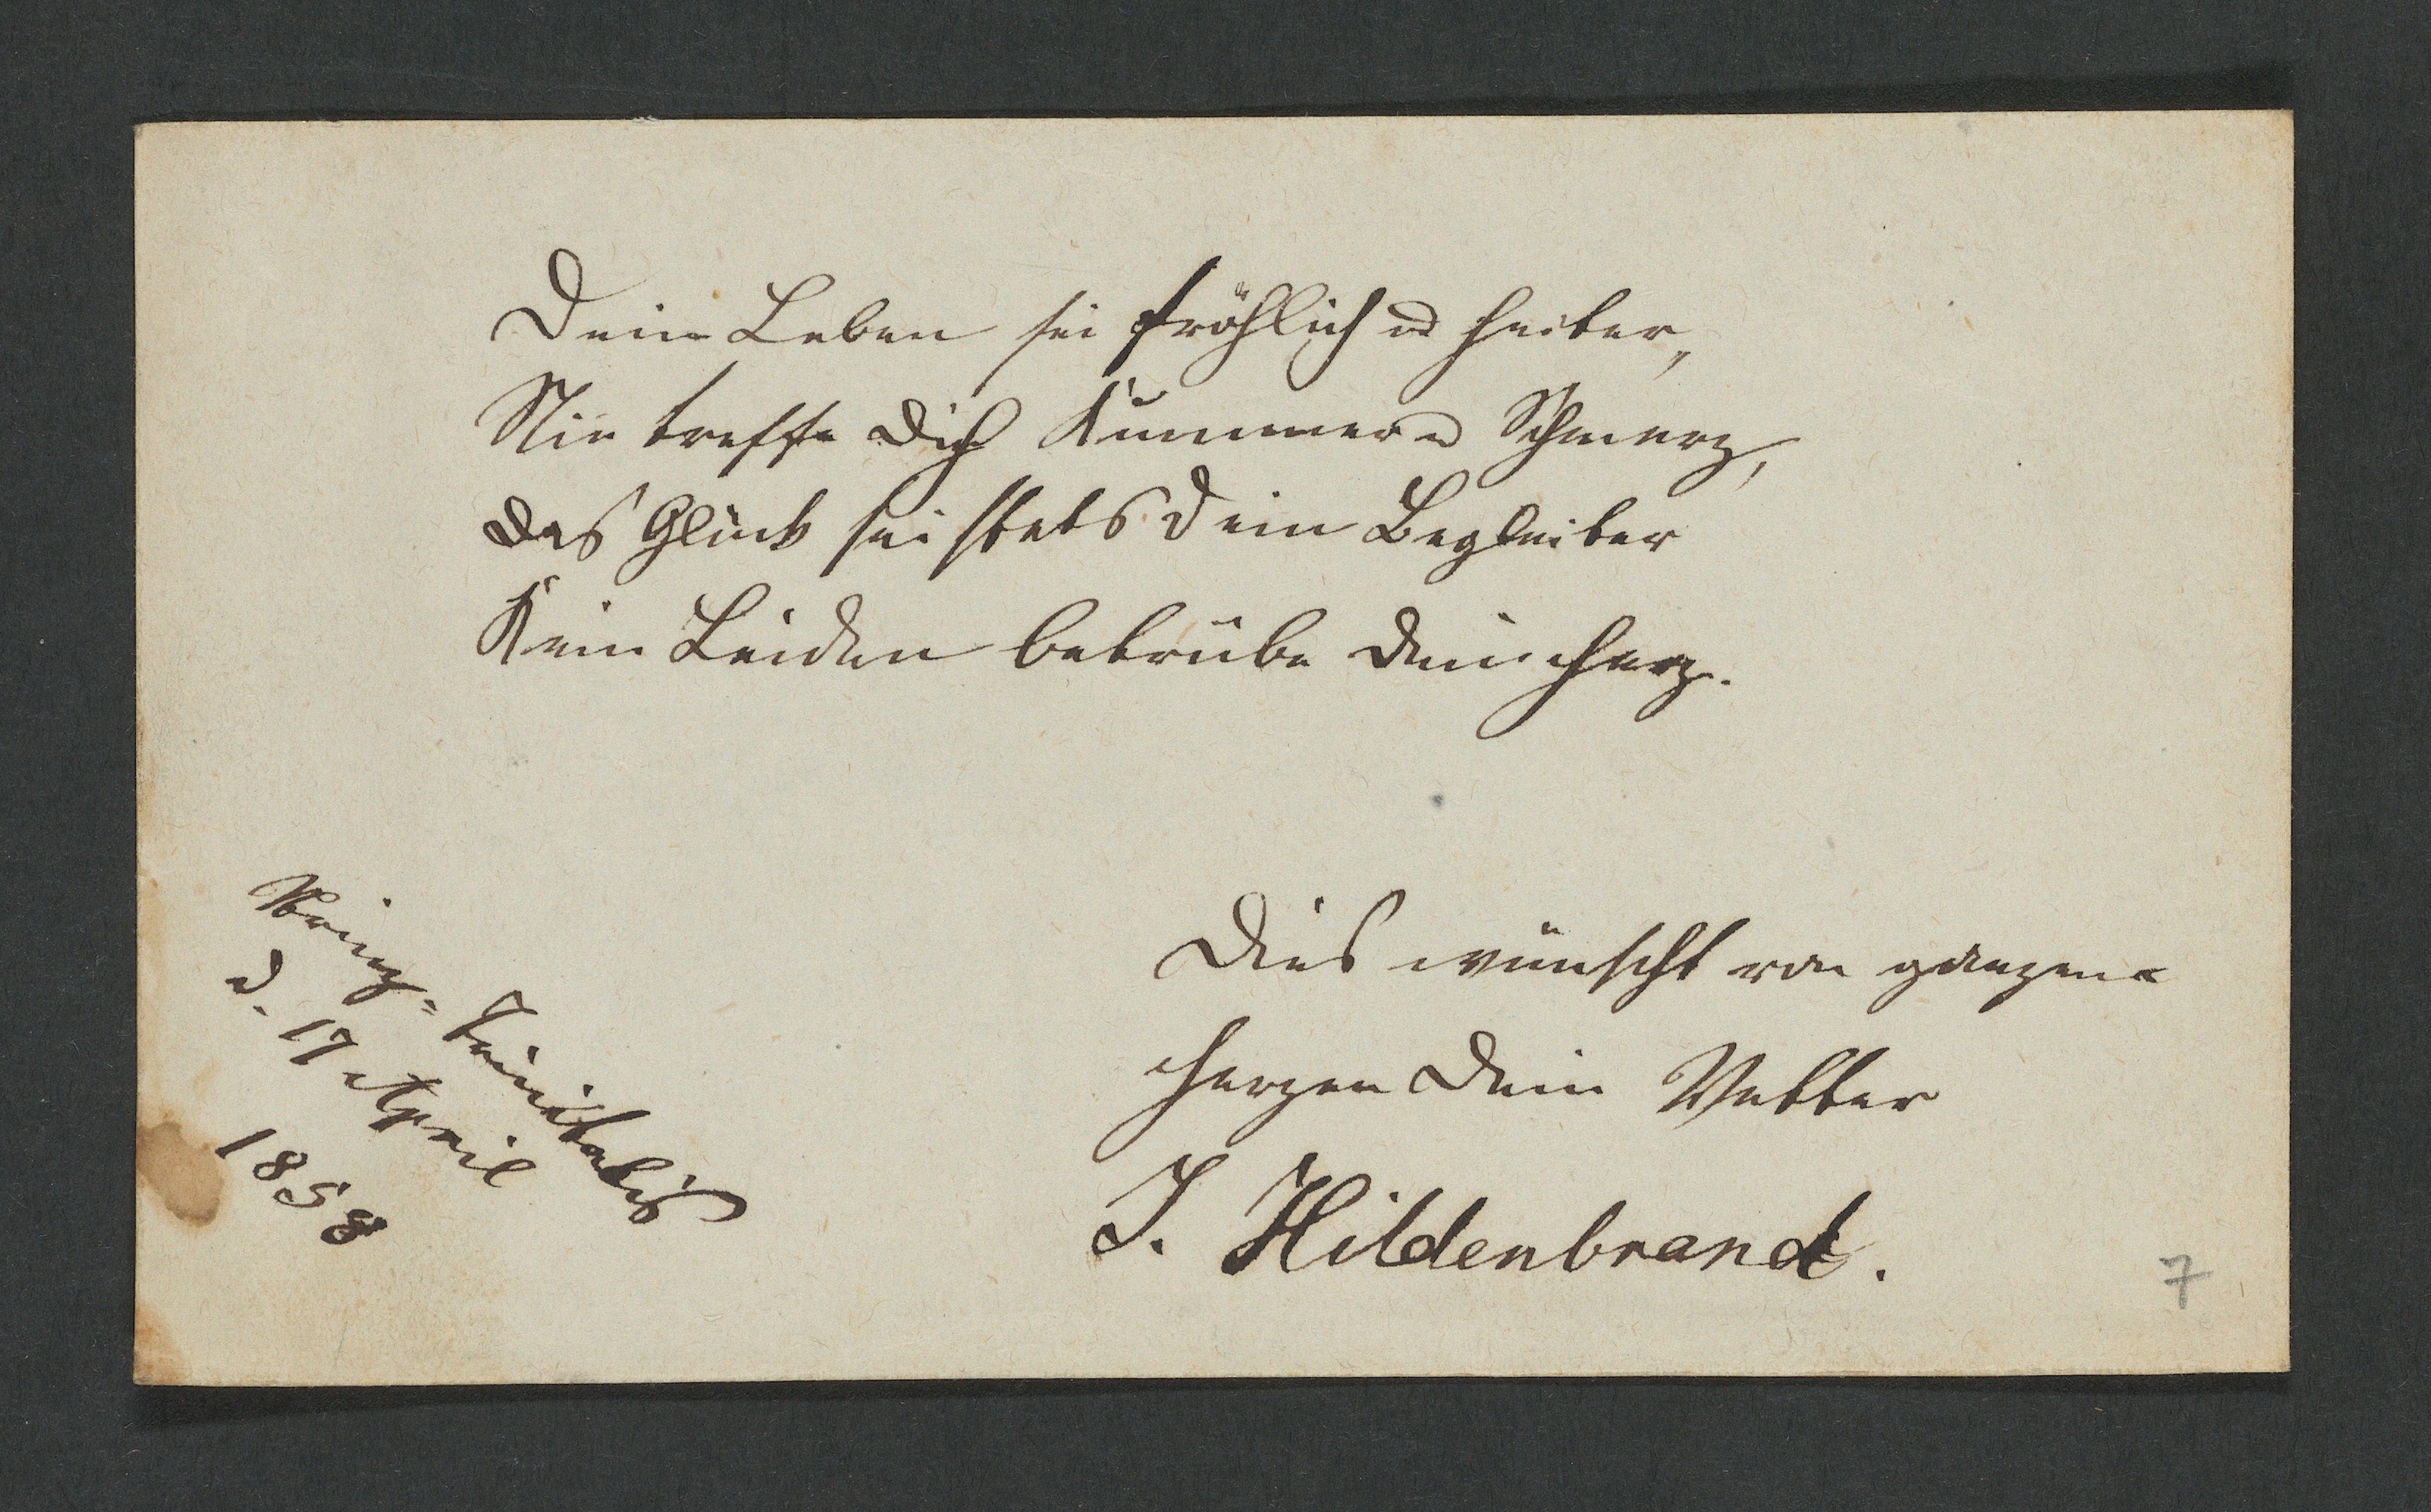 Dein Leben sei fröhlich u heiter,
Nie treffe Dich Kummer u Schmerz,
das Glück sei stets Dein Begleiter
Kein Leiden betrübe dein Herz.
Dies wünscht von ganzen
Herzen Dein Vetter
J. Hildenbrand.
d. 17 April
1858
7